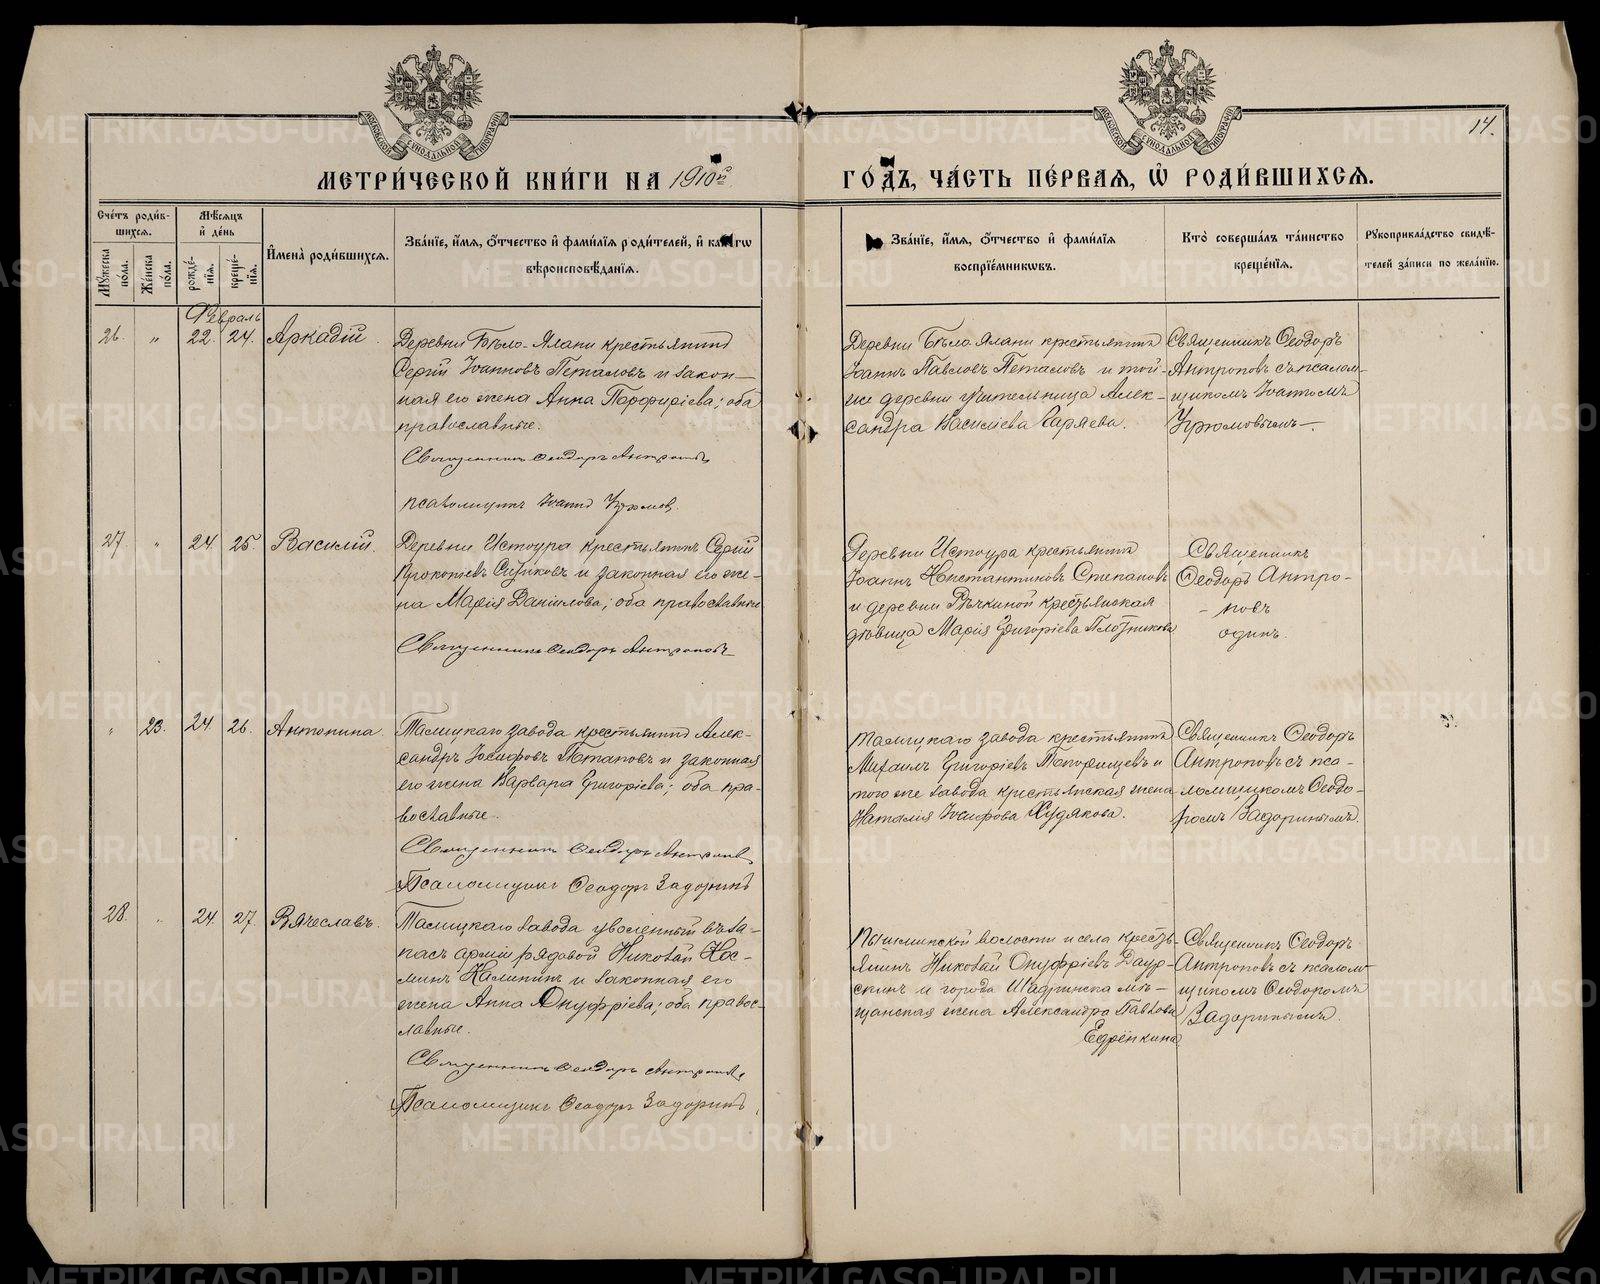 МЕТРИ́ЧЕСКОЙ КНИ́ГИ НА 1910й ГО́ДЪ, ЧА́СТЬ ПЕ́РВАЯ, Ѿ РОДИ́ВШИХСЯ.
14.
Сче́тъ роди́в-
шихся.
Мѣ́сяцъ
и҆ де́нь
И҆мена̀ роди́вшихся.
Зва́нїе, и҆́мя, ѻ҆́тчество и҆ фами́лїя роди́телей, и҆ како́гѡ
вѣроисповѣ́данїя.
Мꙋ́жеска
по́ла.
Же́нска
по́ла.
рожде́-
нїя.
креще́-
нїя.
Зва́нїе, и҆́мя, ѻ҆́тчество и҆ фами́лїя
воспрїе́мниковъ.
Кто̀ соверша́лъ та́инство
креще́нїя.
Рꙋкоприкла́дство свидѣ́-
телей за́писи по жела́нїю.
Февраль
26. " 22. 24. Аркадій.
Деревни Бѣло-Ялани крестьянинъ
Сергій Іоанновъ Петаловъ и закон-
ная его жена Анна Порфиріева; оба
православные.
Священникъ Ѳеодоръ Антроповъ
псаломщикъ Іоаннъ Угрюмов.
Деревни Бѣло-Ялани крестьянинъ
Іоаннъ Павловъ Петаловъ и той-
же деревни учительница Алек-
сандра Василіева Гаряева.
Священникъ Ѳеодоръ
Антроповъ съ псалом-
щикомъ Іоанномъ
Угрюмовымъ.
27. " 24. 25. Василій.
Деревни Истоура крестьянинъ Сергій
Прокопіевъ Ситниковъ и законная его же-
на Марія Даніилова; оба православные
Священникъ Ѳеодоръ Антроповъ
Деревни Истоура крестьянинъ
Іоаннъ Константиновъ Степановъ
и деревни Рѣчкиной крестьянская
дѣвица Марія Григоріева Плотникова
Священникъ
Ѳеодоръ Антро-
- повъ
одинъ.
" 23. 24. 26. Антонина.
Талицкаго завода крестьянинъ Алек-
сандръ Іосифовъ Потаповъ и законная
его жена Варвара Григоріева; оба пра-
вославные.
Священникъ Ѳеодоръ Антропов
Псаломщикъ Ѳеодоръ Задоринъ
Талицкаго завода крестьянинъ
Михаилъ Григоріевъ Топорищевъ и
того же завода крестьянская жена
Наталія Іосифова Худякова.
Священникъ Ѳеодоръ
Антроповъ съ пса-
ломщикомъ Ѳеодо-
ромъ Задоринымъ.
28. " 24. 27. Вячеславъ.
Талицкаго завода уволенный въ за-
пасъ арміи рядовой Николай Кос-
минъ Калининъ и законная его
жена Анна Онуфріева; оба правос-
лавные.
Священникъ Ѳеодоръ Антропов
Псаломщикъ Ѳеодоръ Задоринъ
Пышминской волости и села кресть-
янинъ Николай Онуфріевъ Даур-
скихъ и города Шадринска мѣ-
щанская жена Александра Павлова
Едрёнкина
Священникъ Ѳеодоръ
Антроповъ съ псалом-
щикомъ Ѳеодоромъ
Задоринымъ.
METRIKI.GASO-URAL.RU